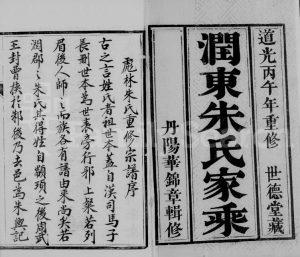 道光丙午年重修
世德堂藏
潤東朱氏家乘
丹陽華錦章輯修
彪林朱氏重修宗譜序
古之言姓氏者祖世本葢自漢司馬子
長刪世本為世表旁行邪上粲若列
眉後人師之而族各有譜由來尚矣若
潤郡之朱氏其得姓自顓頊之後周武
王封曹俠於邾後乃去邑為朱與記